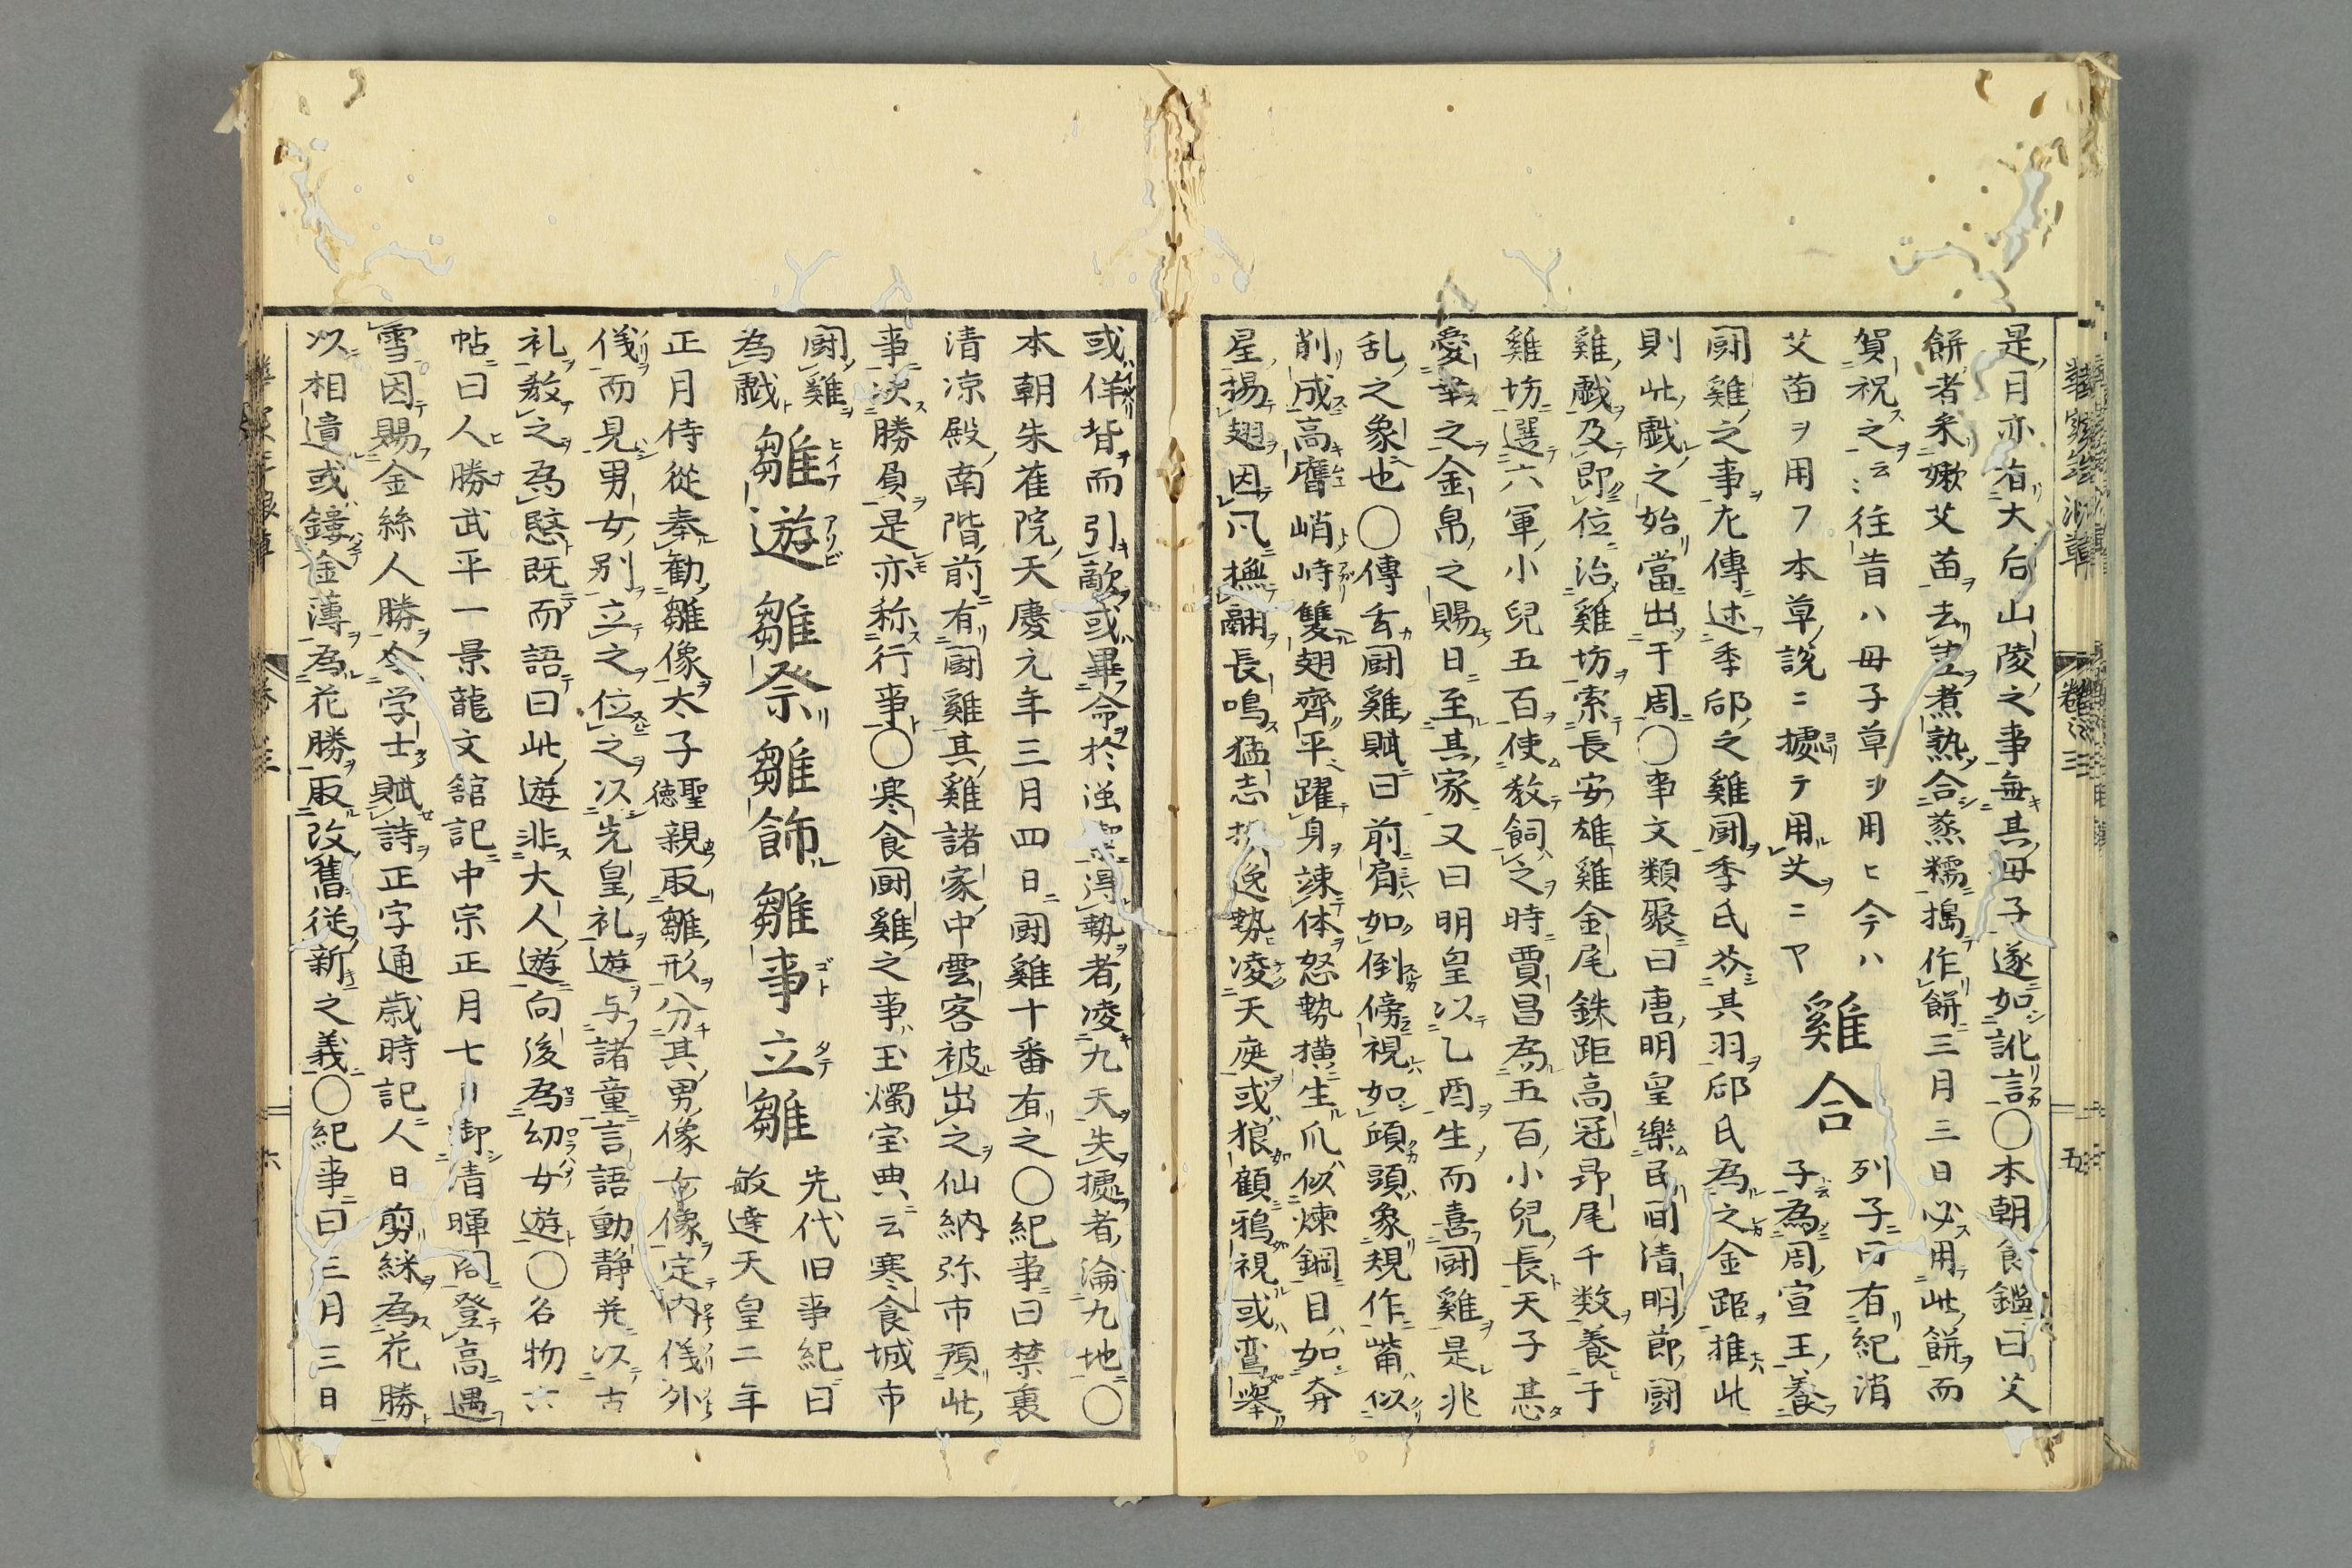 是月亦有大后山陵之事無其母子遂如訛言〇本朝食鑑曰艾
餅者采嫩艾苗去土煮熟合蒸糯搗作餅三月三日必用此餅而
賀祝之云々往昔ハ母子草ヲ用ヒ今ハ
艾苗ヲ用フ本草説ニ據テ用艾ニヤ
雞合
列子曰有紀消
子為周宣王養
闘雞之事左傳述季郈之雞闘季氏芥其羽郈氏為之金距推此
則此戯之始當出于周〇事文類聚曰唐明皇樂民間清明節闘
雞戯及即位治雞坊索長安雄雞金尾銖距高冠昂尾千数養于
雞坊選六軍小兒五百使教飼之時賈昌為五百小兒長天子甚
愛幸之金帛之賜日至其家又曰明皇以乙酉生而喜闘雞是兆
乱之象也〇傳玄闘雞賦曰前肩如倒傍視如頭象規作觜似
削成高膺峭峙雙翅齊平躍身竦体怒勢横生爪似煉鋼目如奔
星揚翅因風撫翮長鳴猛志逸勢凌天庭或狼顧鴉視或鸞舉
或佯背而引敵或畢命於強得勢者凌九天失據者淪九地〇
本朝朱雀院天慶元年三月四日闘雞十番有之〇紀事曰禁裏
清涼殿南階前有闘雞其雞諸家中雲客被出之仙納弥市預此
事决勝負是亦称行事〇寒食闘雞之事玉燭宝典云寒食城市
闘雞
為戯
雛遊 雛祭 雛飾 雛事 立雛
先代旧事紀曰
敏達天皇二年
正月侍從奉勧雛像太子聖徳親取雛形分其男像女像定内儀外
儀而見男女別立之位之以先皇礼遊与諸童言語動静并以古
礼教之為愍既而語曰此遊非大人遊向後為幼女遊〇名物六
帖曰人勝武平一景龍文舘記中宗正月七日御清暉閣登高遇
雪因賜金絲人勝令学士賦詩正字通歳時記人日剪綵為花勝
以相遺或鏤金薄為花勝取改舊従新之義〇紀事曰三月三日